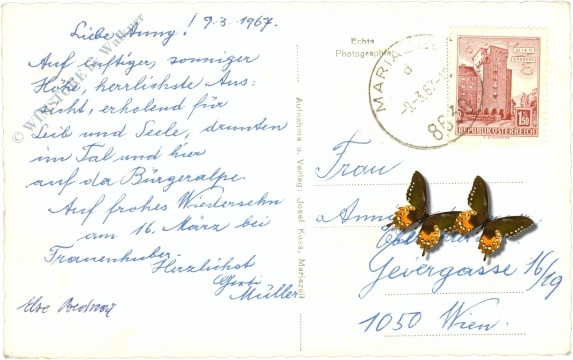 Liebe Anny! 9-3-1967.
Auf luftiger, sonniger
Höhe, herrlichste Aus-
sicht, erholend für
Leib und Seele, drunten
im Tal und hier
auf da Bürgeralpe.
Auf frohes Wiedersehn
am 16. März bei
Frauenhuber.
Herzlichst
Gerti
Müller
Else
© WINSTORE by Wallner
Echte
Photographie
Aufnahme u. Verlag: Josef Kuss, Mariazell
MARIAZELL
d
-9.-3.67
8630
WIEN
1.50
REPUBLIK ÖSTERREICH
Frau
Geiergasse 16/19
1050 Wien.